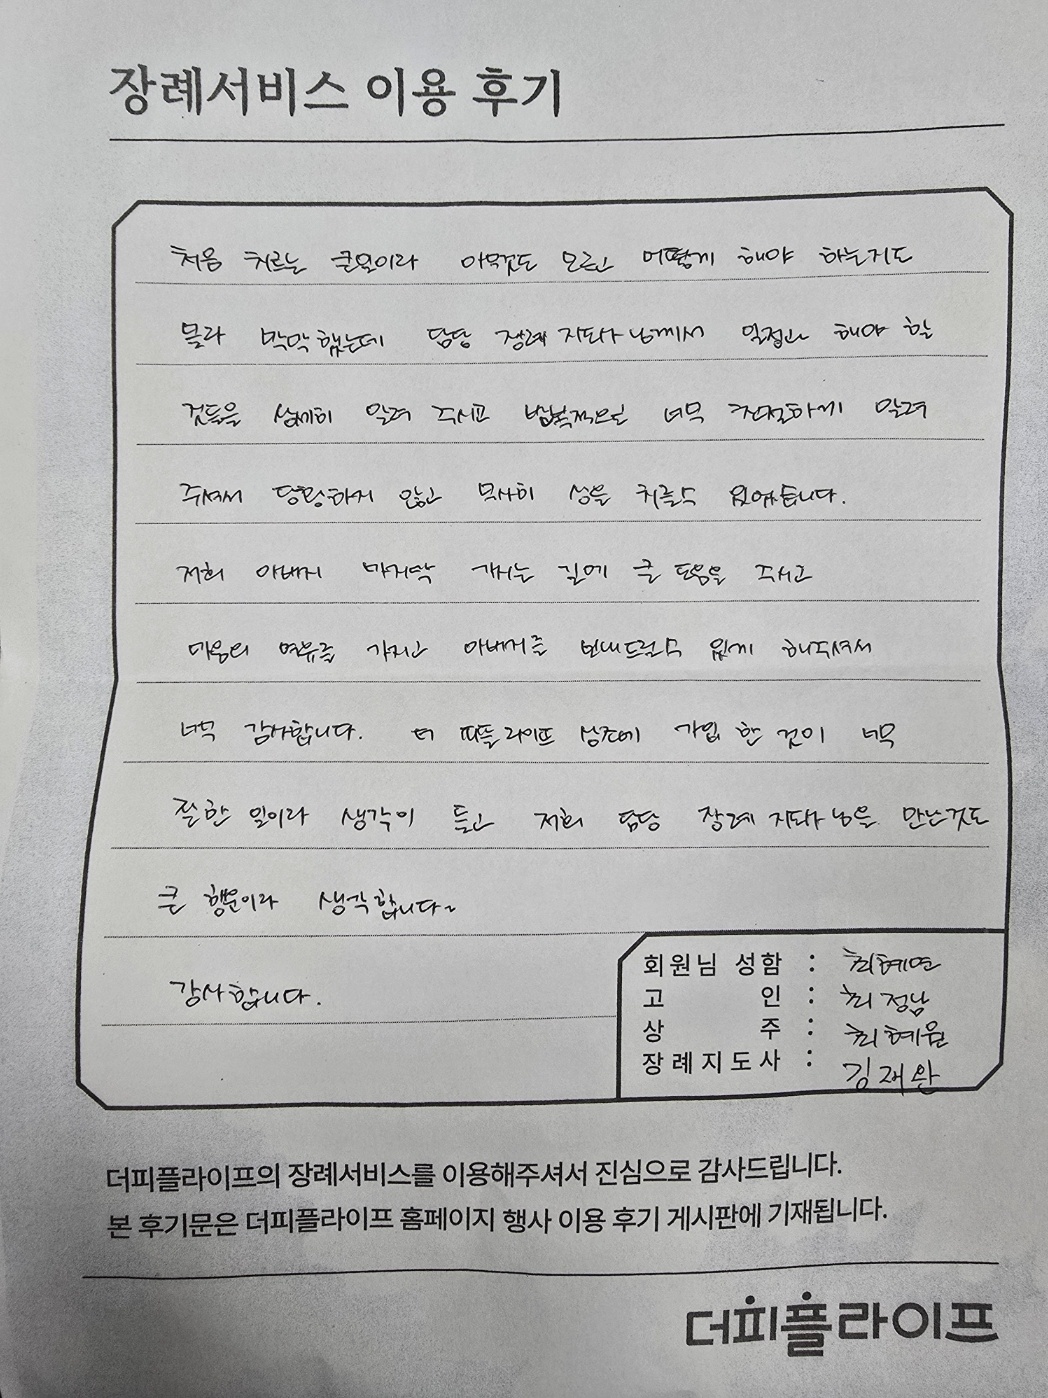 장례서비스 이용 후기
처음 치르는 큰일이라 아무것도 모르고 어떻게 해야 하는지도
몰라 막막했는데 담당 장례 지도사님께서 일정과 해야 할
것들을 상세히 알려 주시고 반복적으로 너무 친절하게 알려
주셔서 당황하지 않고 무사히 상을 치를수 있었습니다.
저희 아버지 마지막 가시는 길에 큰 도움을 주시고
마음의 여유를 가지고 아버지를 보내드릴수 있게 해주셔서
너무 감사합니다. 더 피플라이프 상조에 가입 한 것이 너무
잘한 일이라 생각이 들고 저희 담당 장례 지도사님을 만난것도
큰 행운이라 생각합니다~
감사합니다.
회원님 성함 : 최혜연
고 인 : 최정남
상 주 : 최혜원
장례지도사 : 김재완
더피플라이프의 장례서비스를 이용해주셔서 진심으로 감사드립니다.
본 후기문은 더피플라이프 홈페이지 행사 이용 후기 게시판에 기재됩니다.
더피플라이프